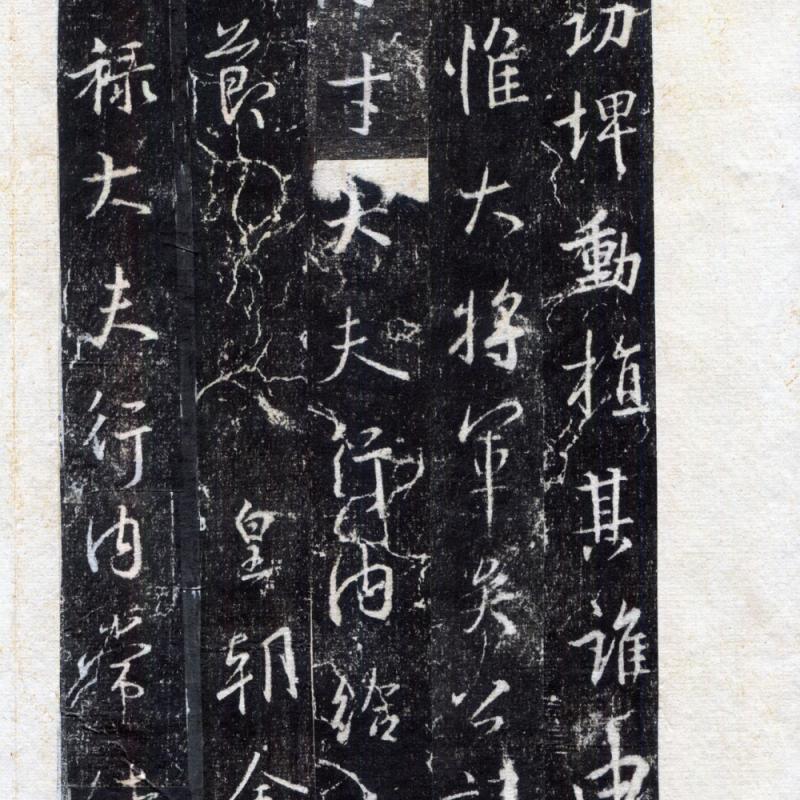 功埤動植其誰
惟大將軍矣公
才大夫行內給
節皇朝金
祿大夫行內常